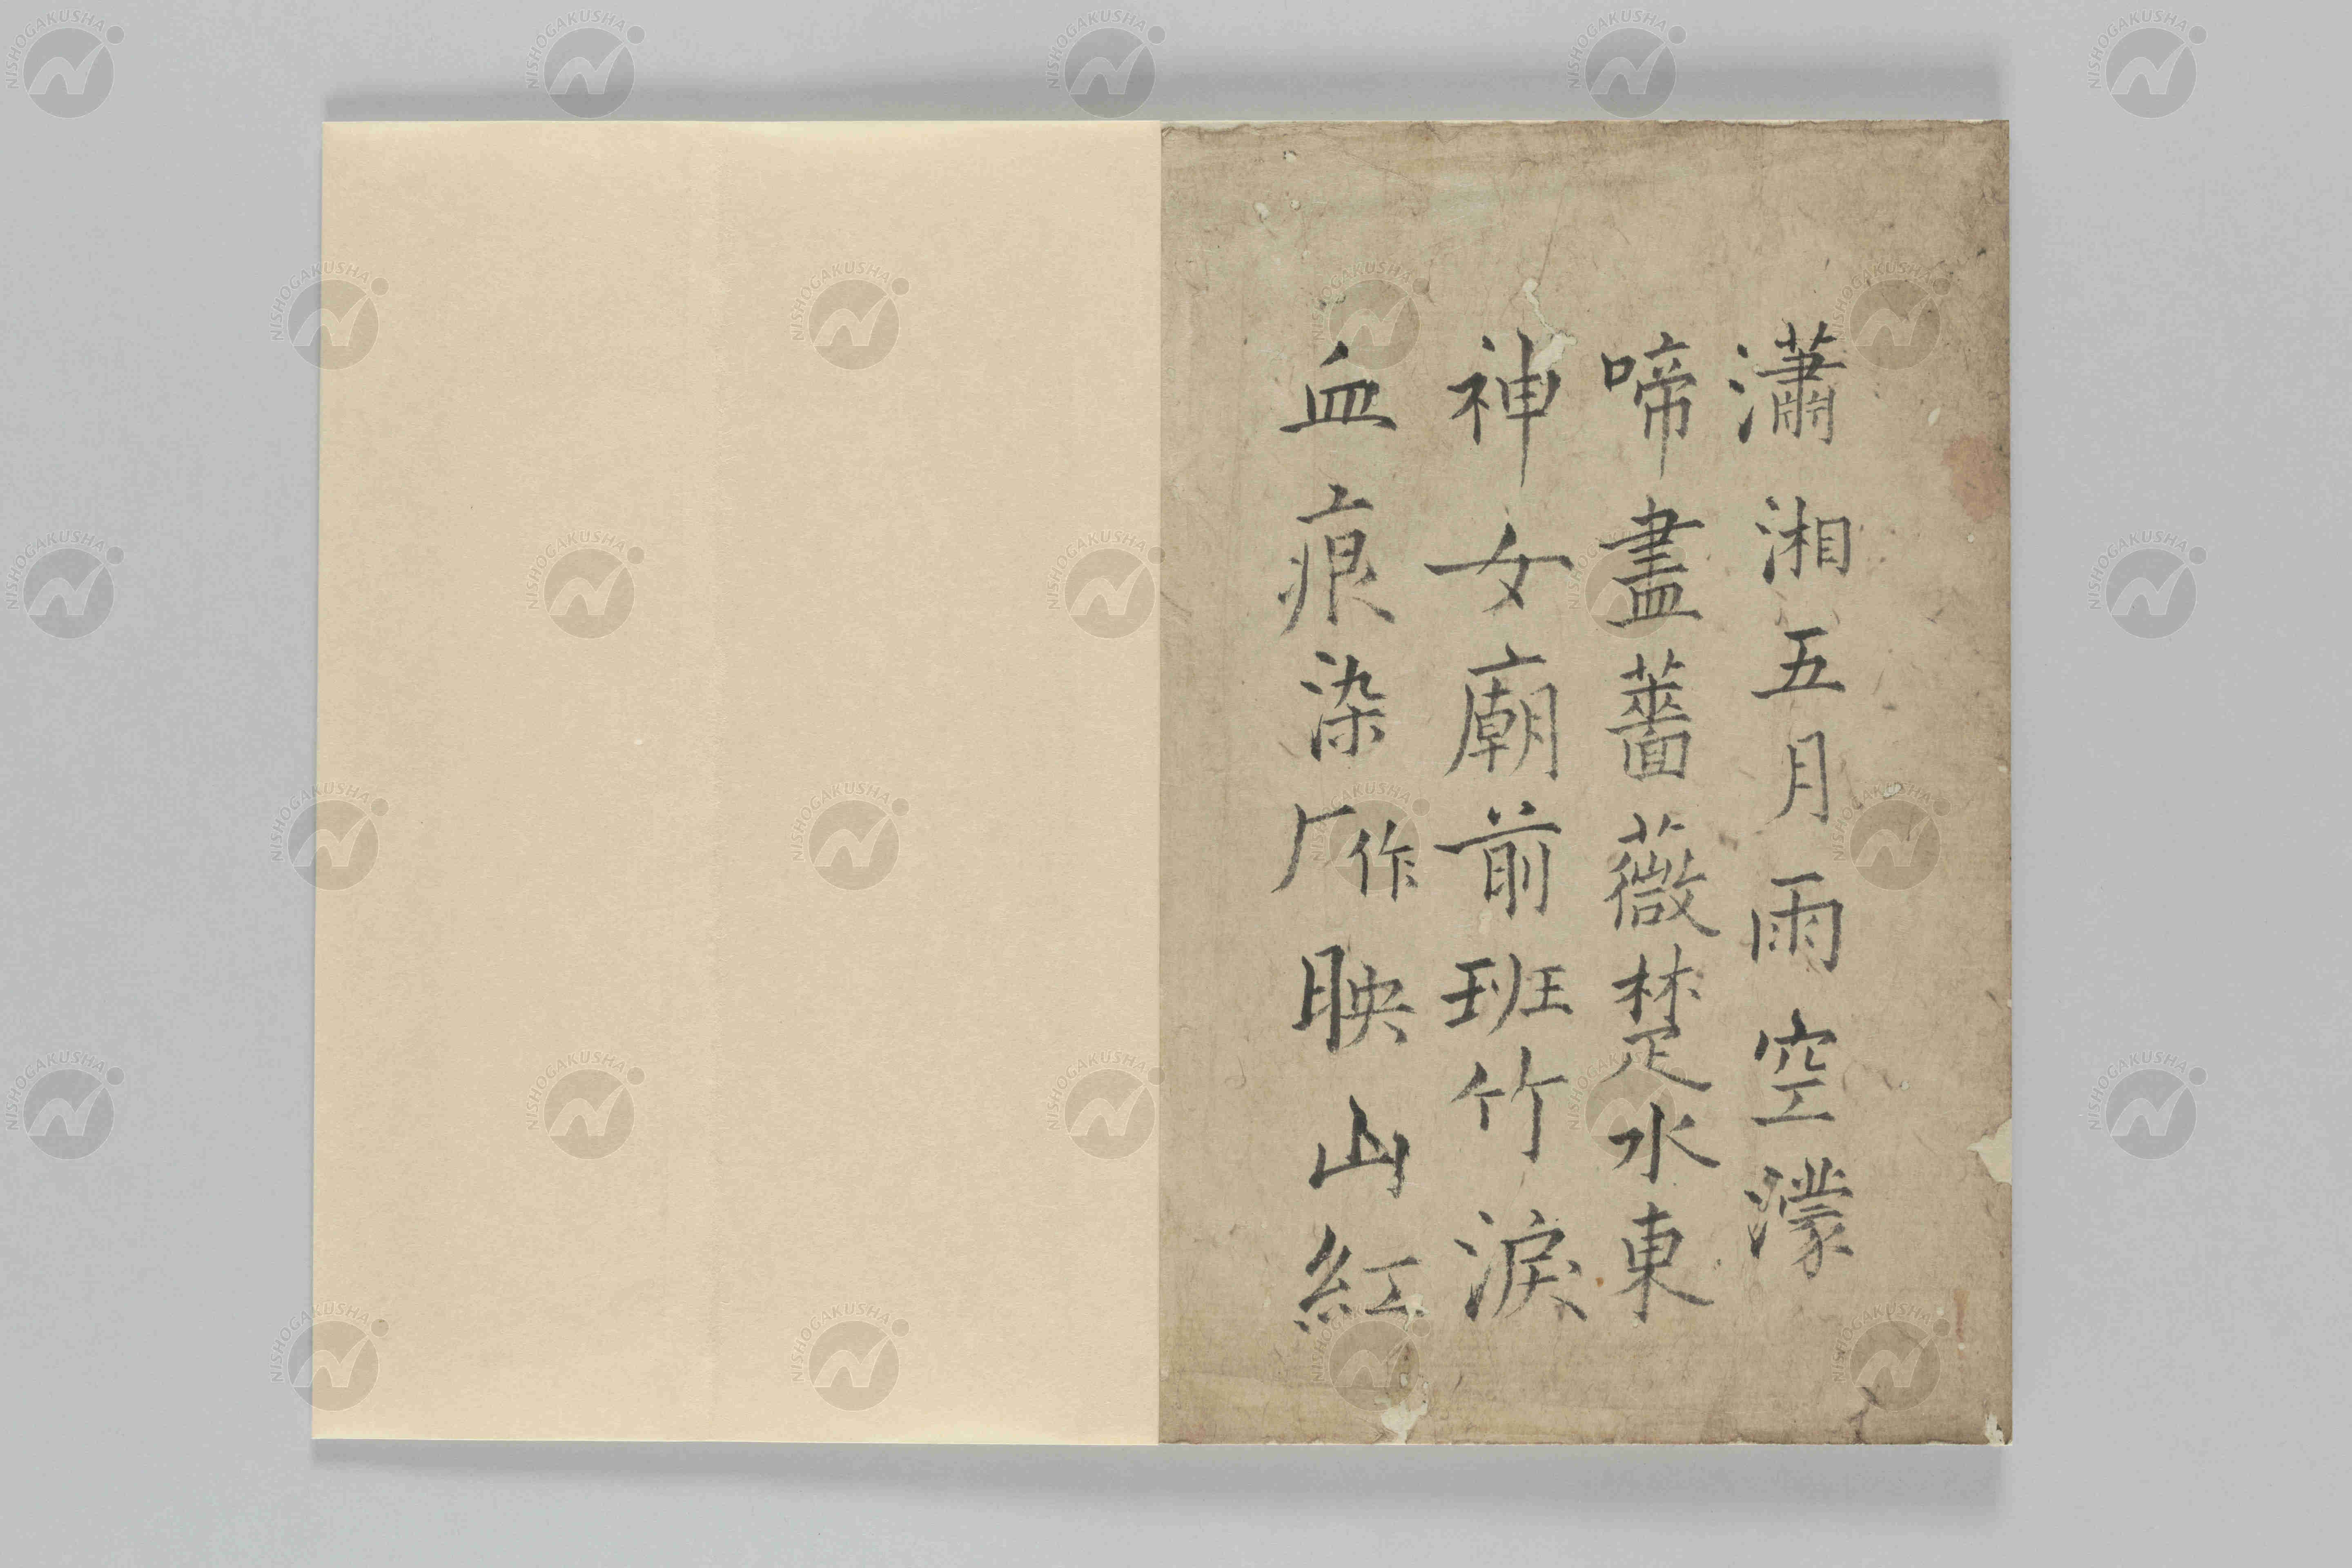 瀟湘五月雨空濛
啼盡薔薇楚水東
神女廟前班竹淚
血痕染作映山紅
NISHOGAKUSHA